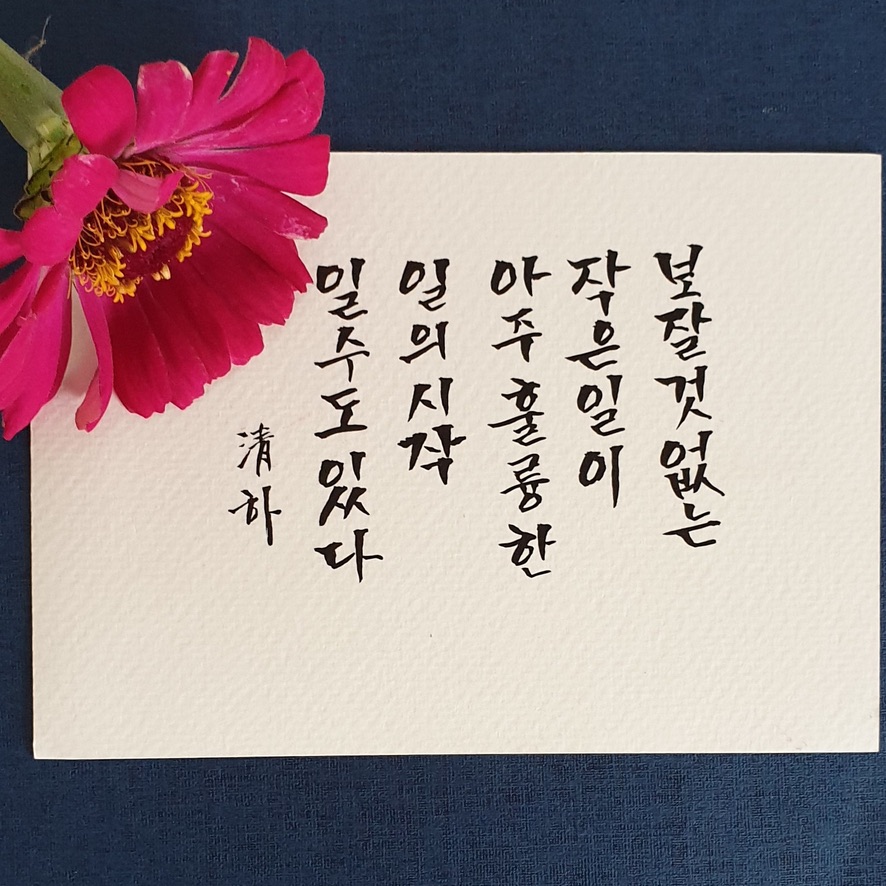 보잘것없는
작은일이
아주훌륭한
일의시작
일수도있다
清하